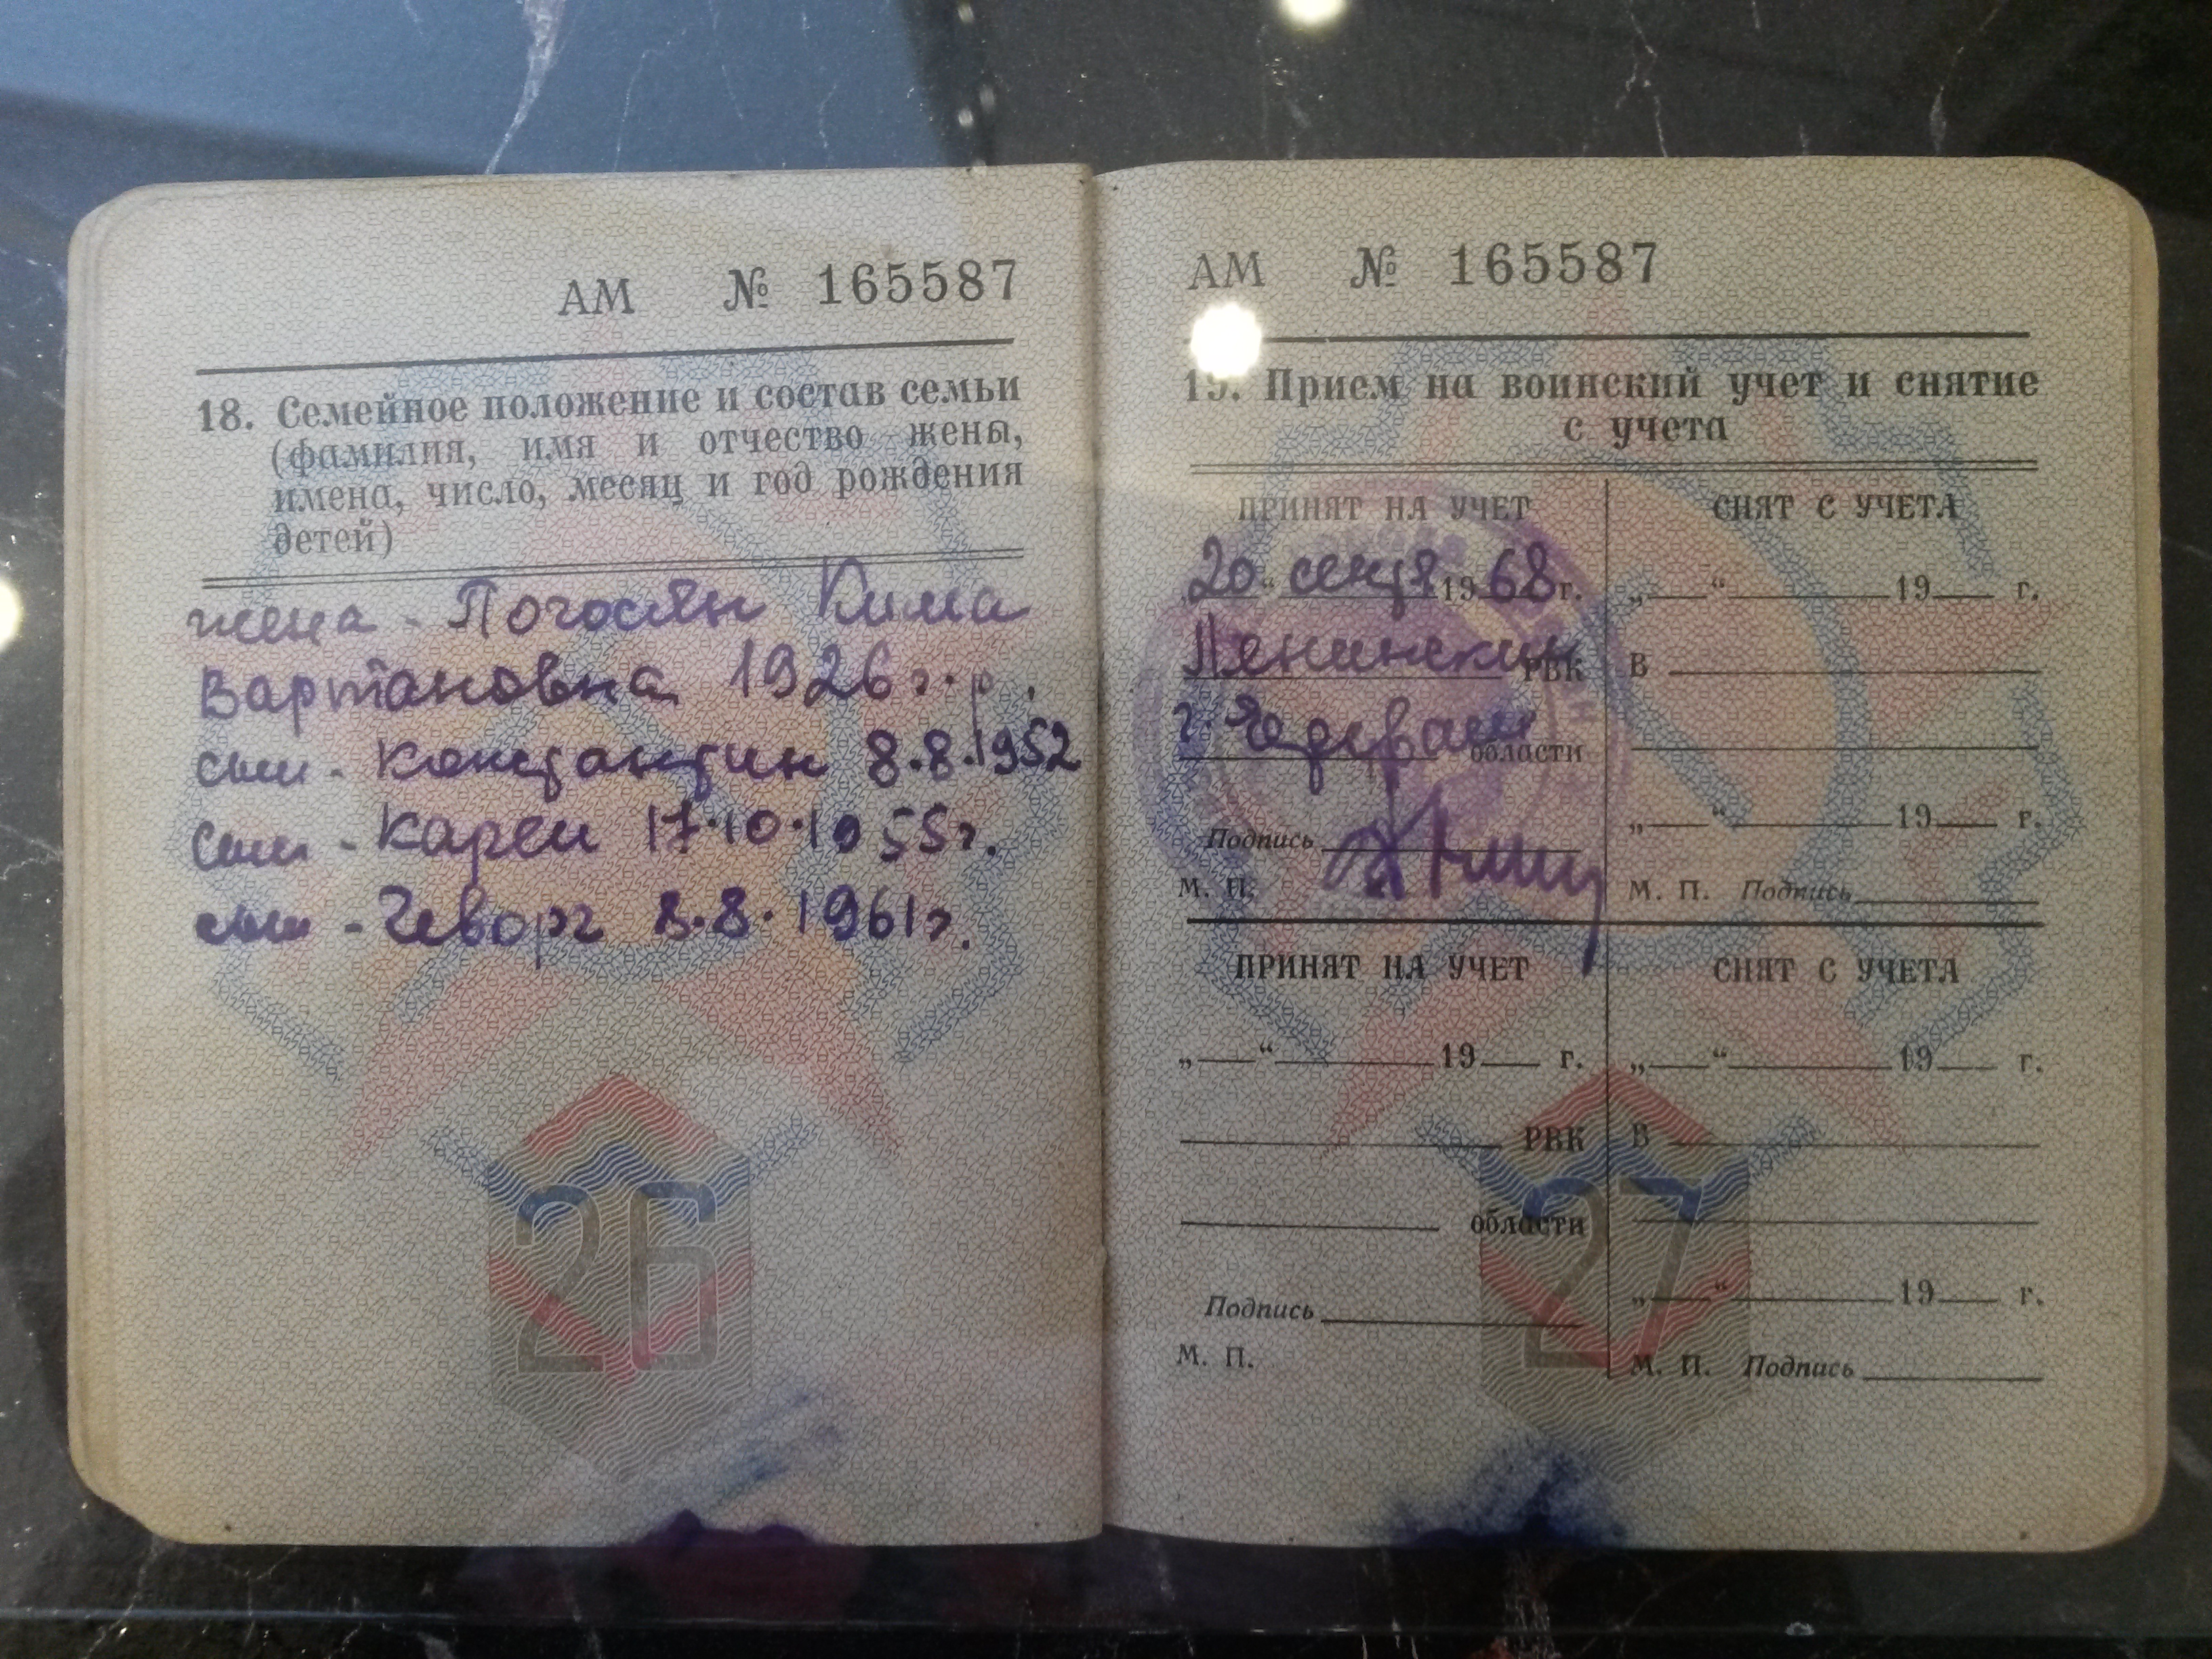 АМ № 165587
18. Семейное положение и состав семьи
(фамилия, имя и отчество жены,
имена, число, месяц и год рождения
детей)
жена - Погосян Кима
Вартановна 1926 г.р.
сын - Константин 8.8.1952
сын - Карен 17.10.1955г.
сын - Геворг 8.8.1961г.
26
АМ № 165587
19. Прием на воинский учет и снятие
с учета
ПРИНЯТ НА УЧЕТ
20 “ 1968 г.
Ленинский РВК
г. области
Подпись
М. П.
СНЯТ С УЧЕТА
„ “ 19 г.
В
„ “ 19 г.
М. П. Подпись
ПРИНЯТ НА УЧЕТ
„ “ 19 г.
РВК
области
Подпись
М. П.
СНЯТ С УЧЕТА
„ “ 19 г.
В
„ “ 19 г.
М. П. Подпись
27